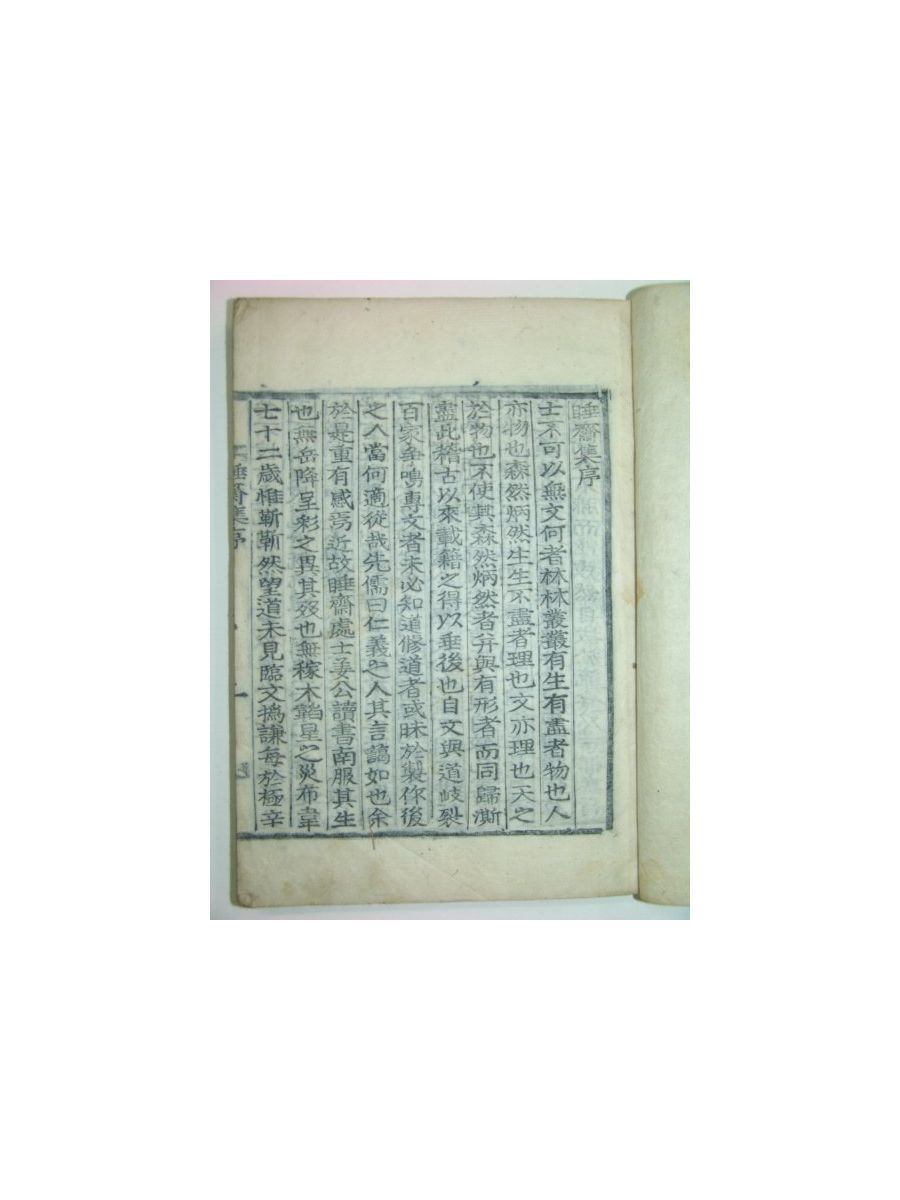 睡齋集序
士不可以無文何者林林叢叢有生有盡者物也人
亦物也森然炳然生生不盡者理也文亦理也天之
於物也不使其森然炳然者幷與有形者而同歸澌
盡此稽古以來載籍之得以垂後也自文與道岐裂
百家爭鳴專文者未必知道修道者或昧於製作後
之人當何適從哉先儒曰仁義之人其言藹如也余
於是重有感焉近故睡齋處士姜公讀書南服其生
也無岳降呈彩之異其歿也無稼木䧟星之災布韋
七十二歲惟斬斬然望道未見臨文撝謙每於極辛
睡齋集序
一